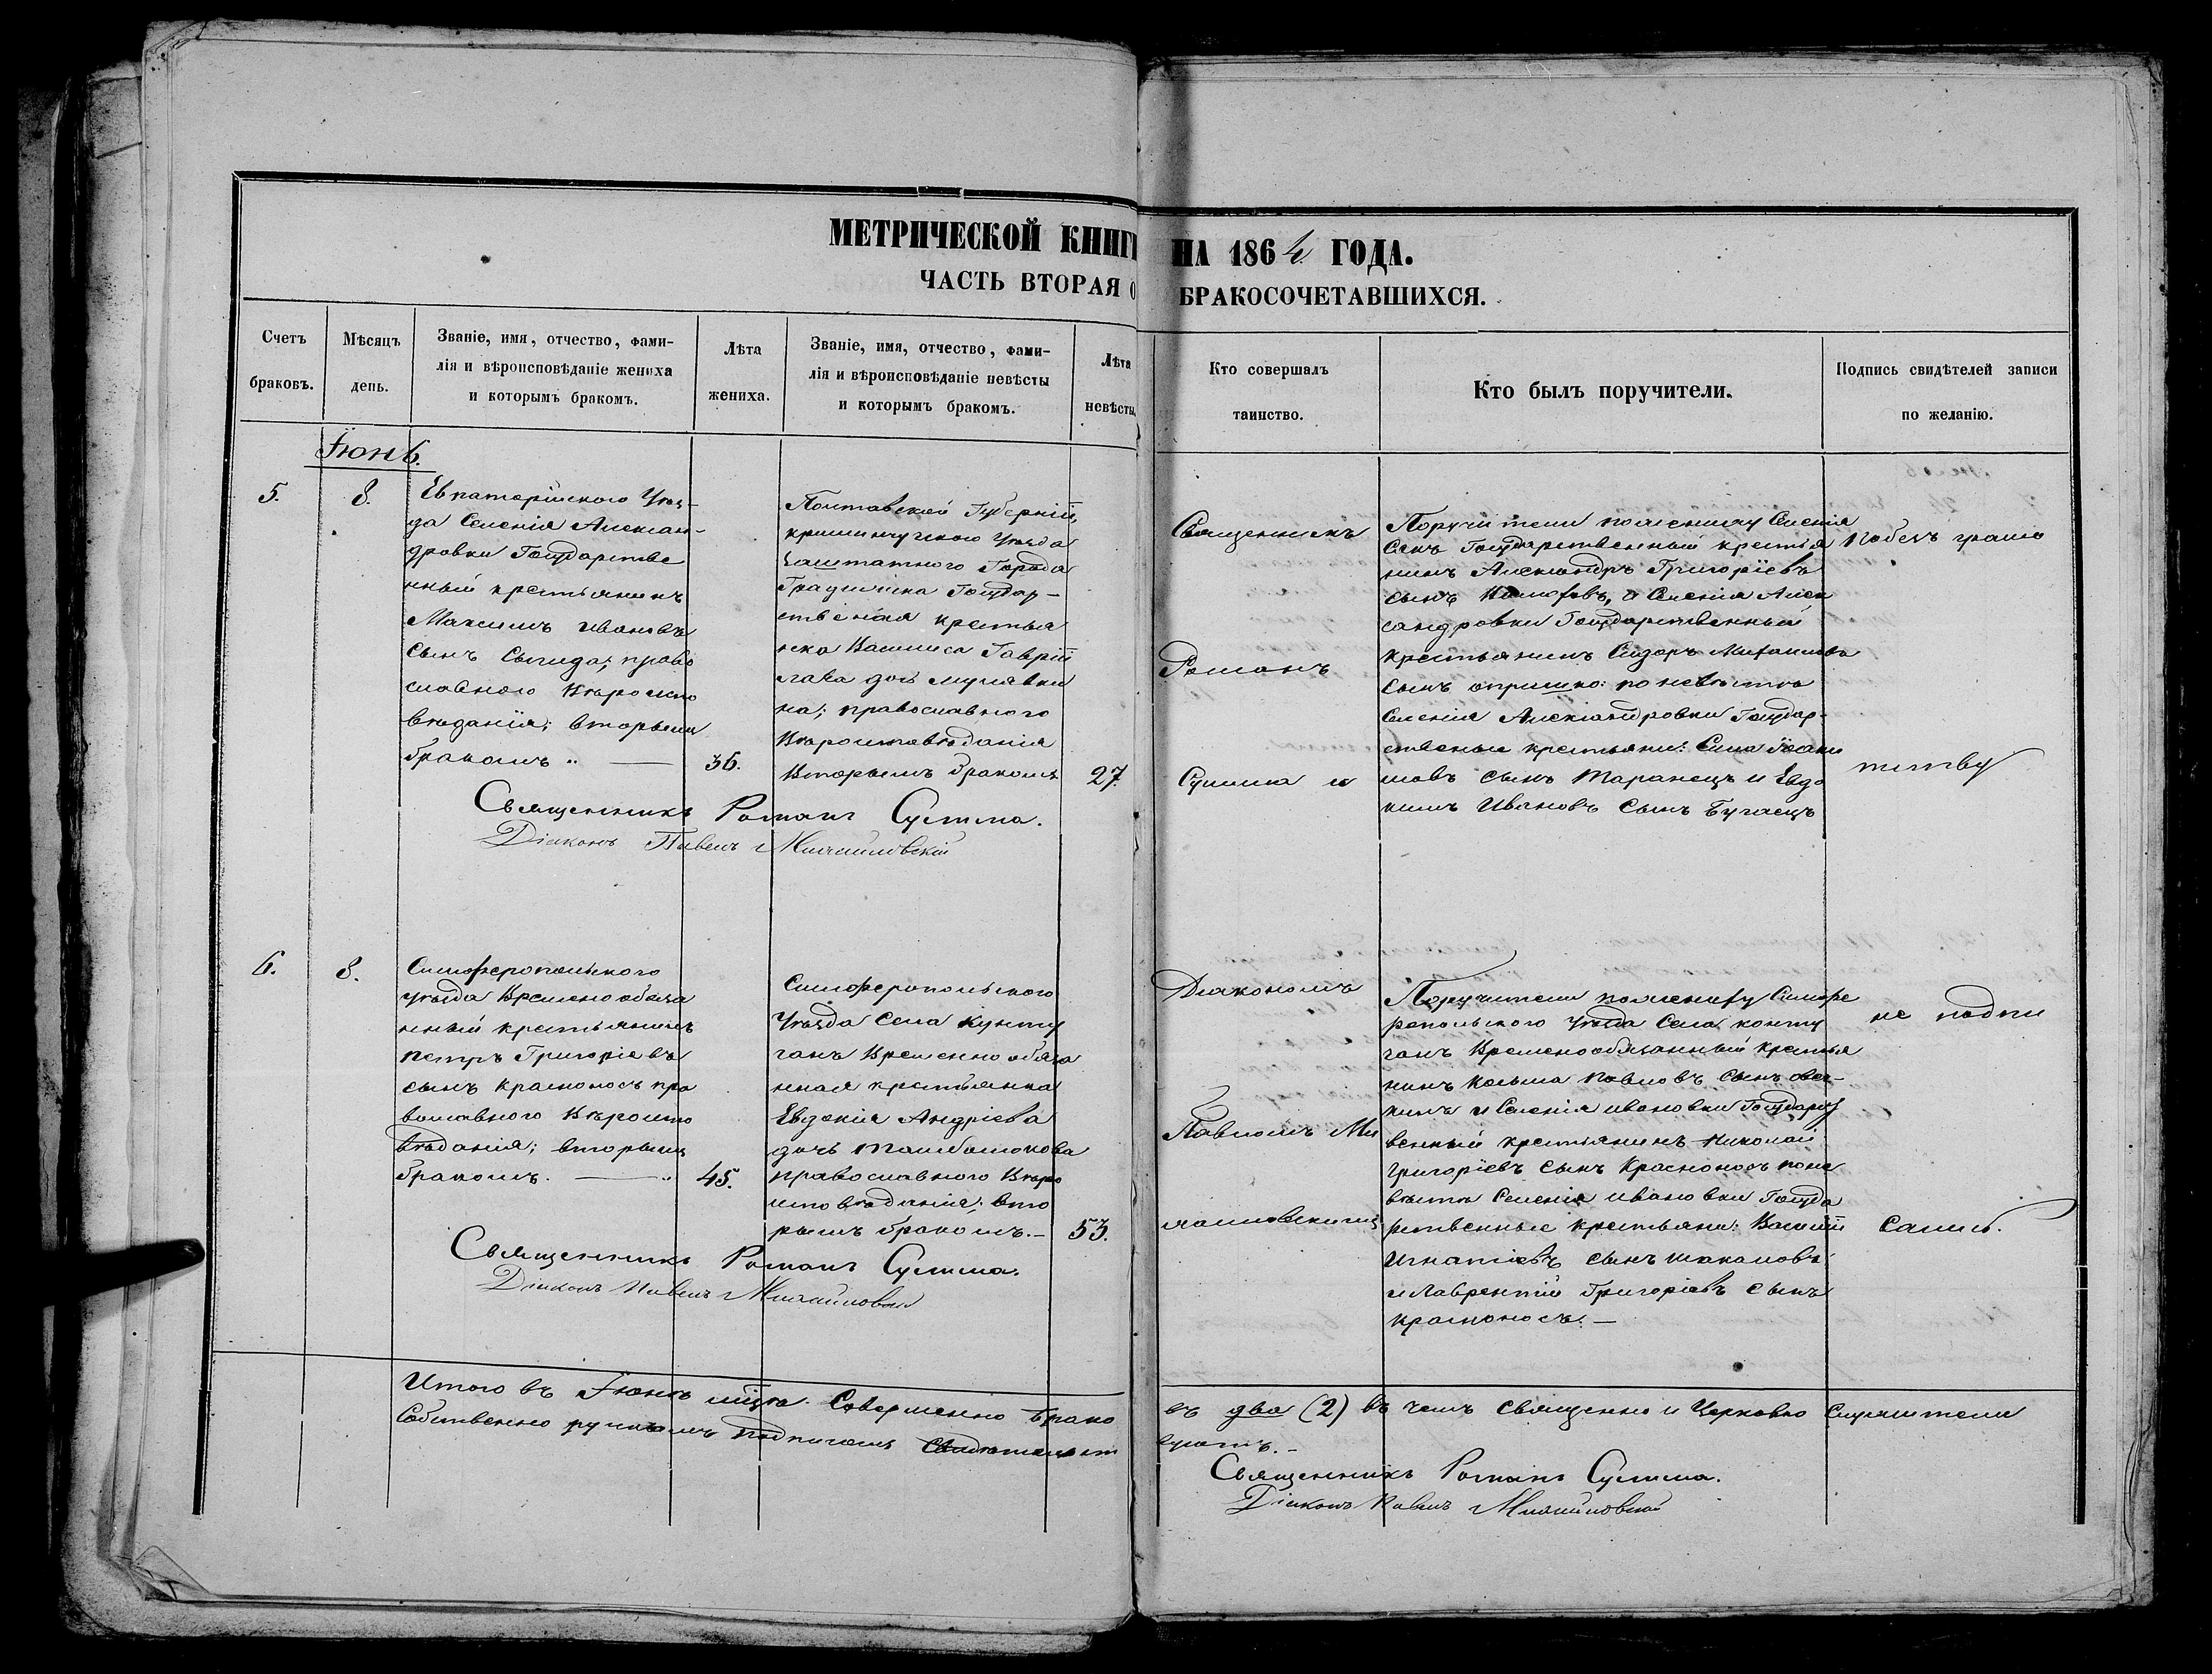 МЕТРИЧЕСКОЙ КНИГИ НА 1864 ГОДА.
ЧАСТЬ ВТОРАЯ О БРАКОСОЧЕТАВШИХСЯ.
Счетъ браковъ.
Мѣсяцъ день.
Званіе, имя, отчество, фами-
лія и вѣроисповѣданіе жениха
и которымъ бракомъ.
Лѣта жениха.
Званіе, имя, отчество, фами-
лія и вѣроисповѣданіе невѣсты
и которымъ бракомъ.
Лѣта невѣсты.
Кто совершалъ
таинство.
Кто былъ поручители.
Подпись свидѣтелей записи
по желанію.
Іюнь.
5.
8.
Евпаторійскаго Уѣз-
да Селенія Алексан-
дровки Государстве
нный крестьянинъ
Максимъ Ивановъ
сынъ православнаго
славного вѣроиспо
вѣданія; вторымъ
бракомъ
36.
Полтавской Губерніи,
Уѣзда
заштатного Города
Градижска Государ-
ственая крестья
нка Васимиса Гаврій
лова доч
на; православного
Вѣроисповѣданія
Вторымъ бракомъ
27.
Священникъ Романъ
Діаконъ Павелъ
Священникъ
Романъ
и
Поручители по жениху Селенія
Государственный крестья
нинъ Александръ Григоріевъ
сынъ и Селенія Алек
сандровки Государственный
крестьянинъ Сидоръ Михаиловъ
сынъ по невѣстѣ
Селенія Александровки Государ-
ственые крестьяни:
сынъ Таранецъ и Евдо
кимъ Ивановъ сынъ Бугаецъ
грамо
6.
8.
Симферопольскаго
уѣзда Временнообяза
нный крестьянинъ
Петръ Григоріевъ
сынъ Красноносъ пра
вославного Вѣроиспо
вѣданія; вторымъ
бракомъ.
45.
Симферопольского
Уѣзда Села Кунту
ганъ Временно обяза
нная крестьянка
Евгенія Андріева
дочь
православного Вѣро
исповѣданія; вто
рымъ бракомъ.-
53.
Священникъ Романъ
Діаконъ Павелъ
Діакономъ
Павломъ Ми
Поручители по жениху Симфе
ропольского Уѣзда Села Конту
ганъ Временообязанный крестья
нинъ Козьма Павловъ сынъ
и Селенія Ивановки Государст
венный крестьянинъ Николай
Григоріевъ сынъ Красноносъ по не
вѣстѣ Селенія Ивановки Госуда
рственные крестьяни: Василій
Игнатіевъ сынъ Шаколовъ
и Лаврентій Григоріевъ сынъ
Красноносъ.-
не подпи
сались.
Итого въ Іюнѣ мцѣ Совершенно Брако
въ два (2) въ чемъ священно и Церковно Служители
Собственно ручнымъ подписомъ Свидѣтельст
вуютъ.-
Священникъ Романъ
Діаконъ Павелъ